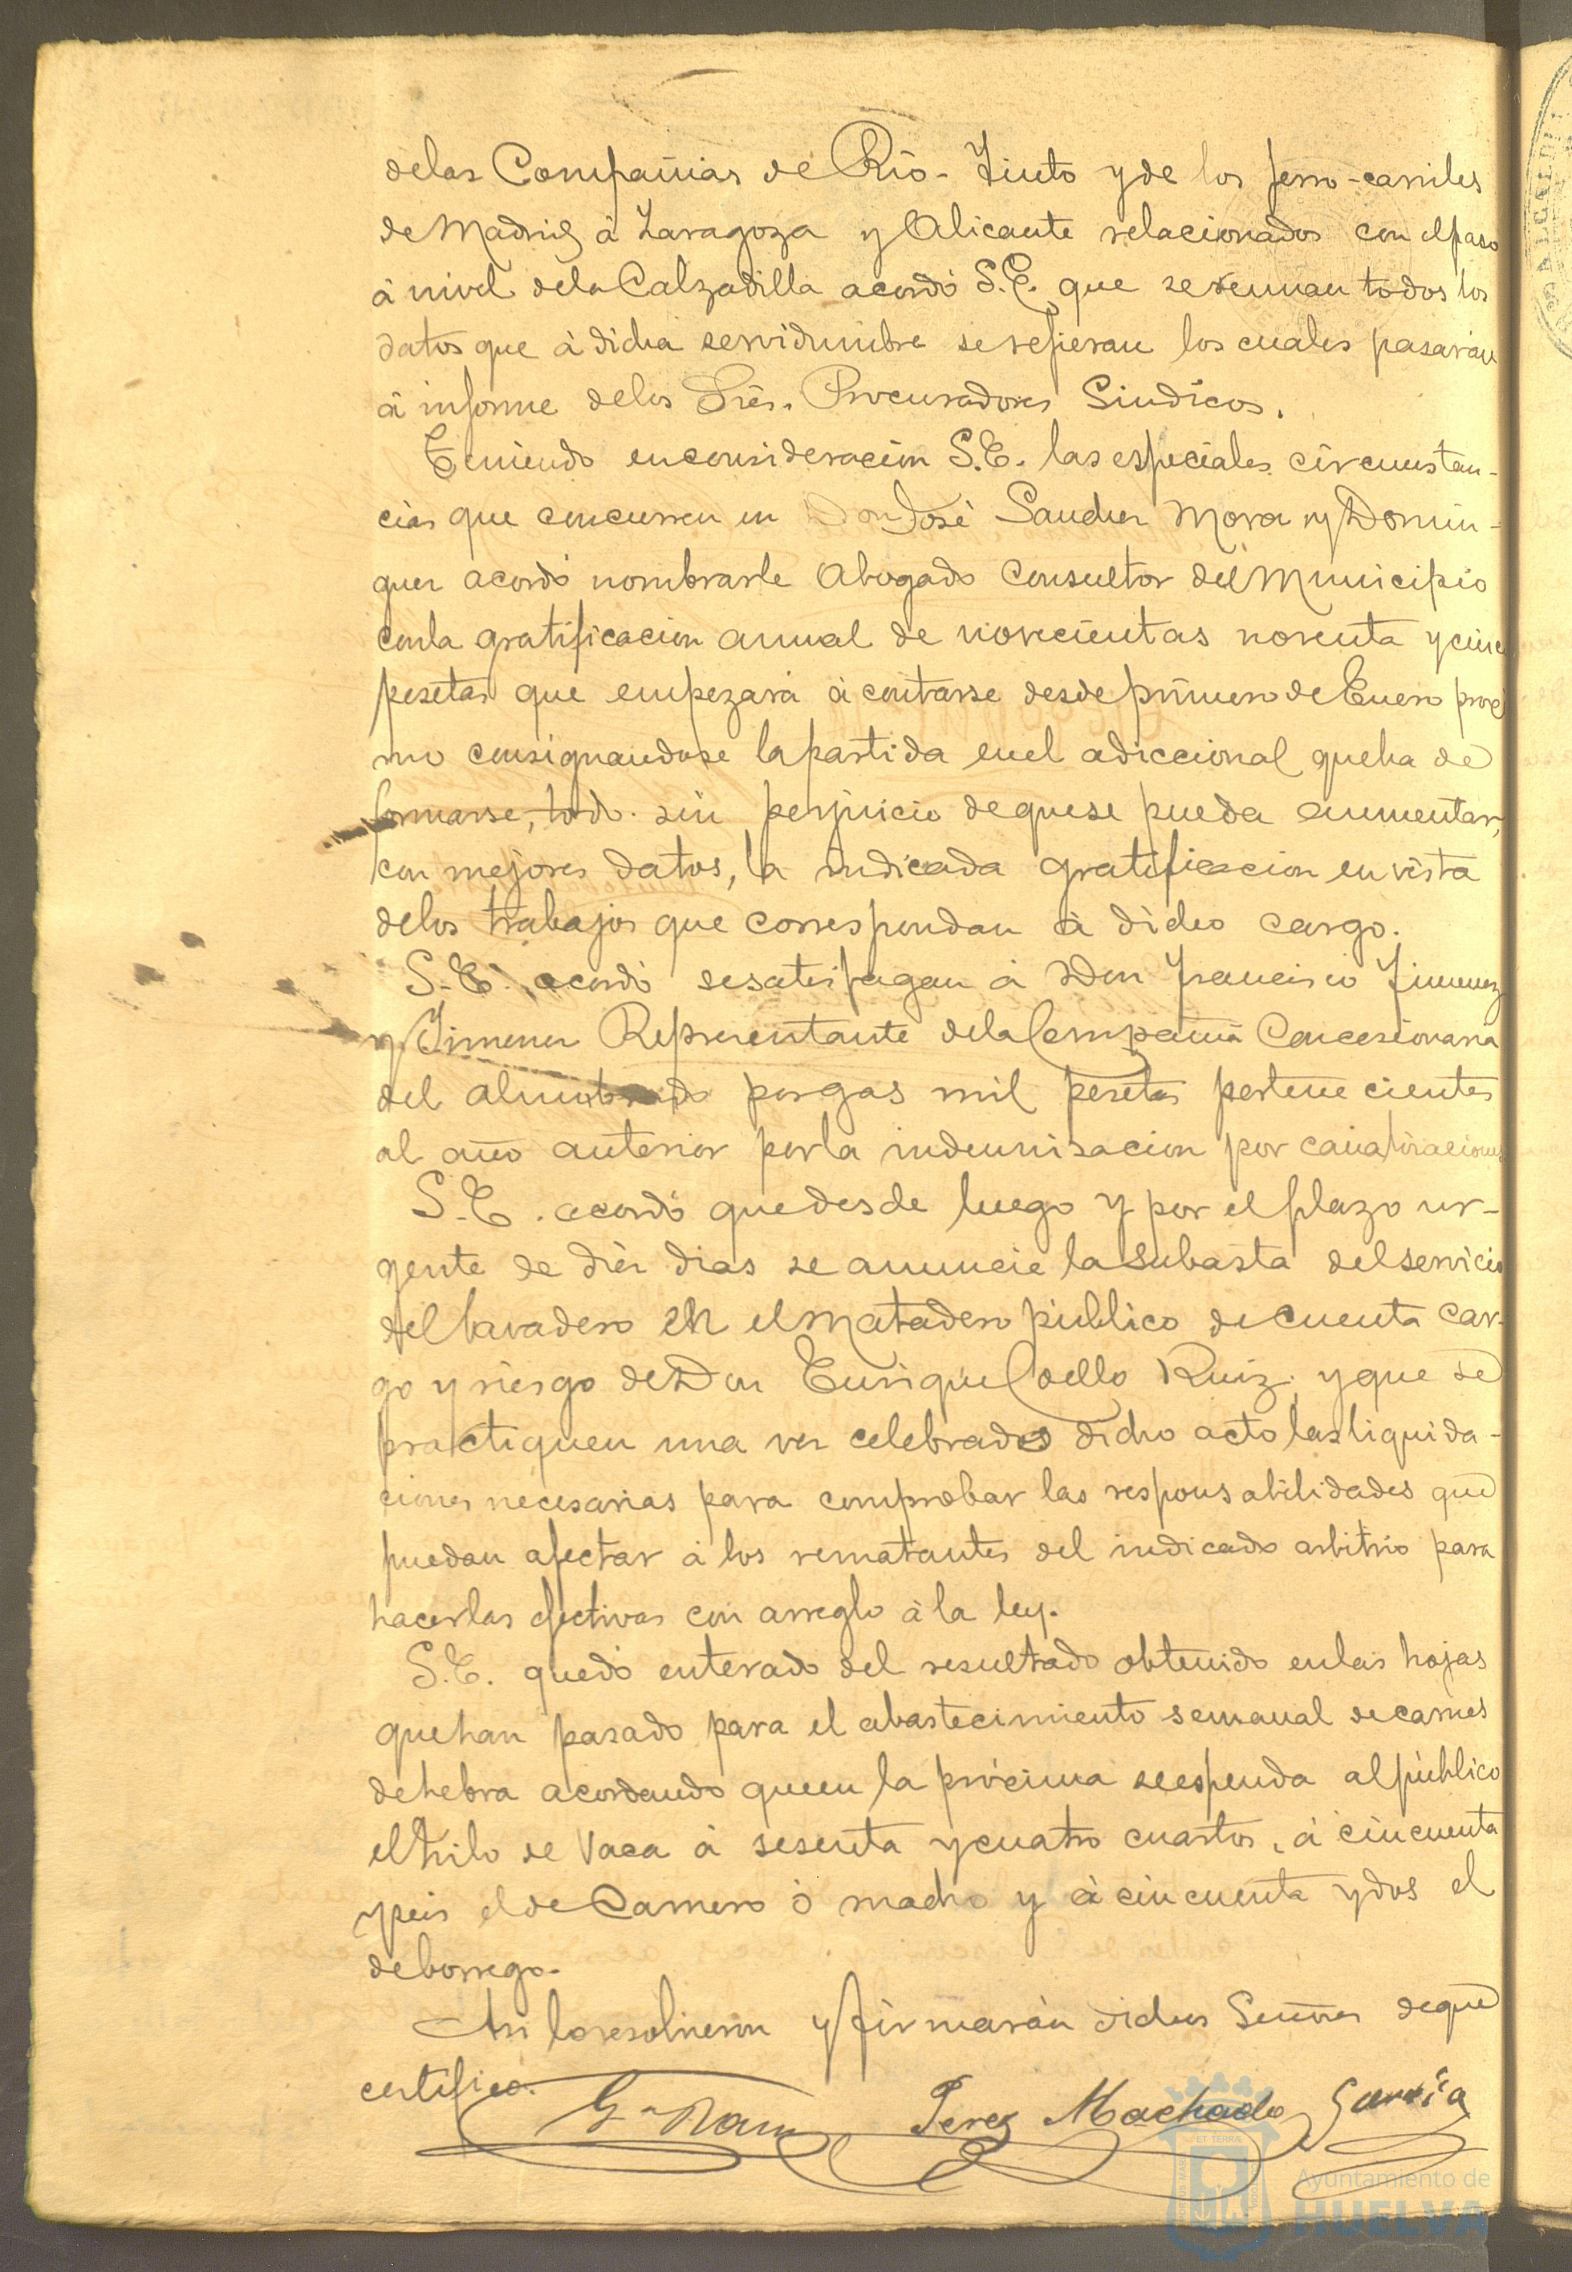 de las Compañias de Rio-Tinto y de los ferro-carriles
de Madrid á Zaragoza y Alicante relacionados con el paso
á nivel de la Calzadilla acordó S.E. que se reunan todos los
datos que á dicha servidumbre se refieran los cuales pasarán
á informe de los Sres. Procuradores Sindicos.
Teniendo en consideracion S.E. las especiales circunstan-
cias que concurren en Don José Sanchez Mora y Domin-
guez acordó nombrarle Abogado Consultor del Municipio
con la gratificacion anual de novecientas noventa y cinc
pesetas que empezará á contarse desde primero de Enero proxi
mo consignandose la partida en el adiccional que ha de
formarse, todo sin perjuicio de que se pueda aumentar,
con mejores datos, la indicada gratificacion en vista
de los trabajos que correspondan á dicho cargo.
S.E. acordó se satisfagan á Don Francisco Jimenez
y Jimenez Representante de la Compañia Concesionaria
del alumbrado por gas mil pesetas pertenecientes
al año anterior por la indemnisacion por canalizaciones
S.E. acordó que desde luego y por el plazo ur-
gente de diez dias se anuncie la subasta del servicio
del lavadero en el matadero público de cuenta car-
go y riesgo de Don Enrique Coello Ruiz, y que se
practiquen una vez celebrados dicho acto las liquida-
ciones necesarias para comprobar las responsabilidades que
puedan afectar á los rematantes del indicado arbitrio para
hacerlas efectivas con arreglo á la ley.
S.E. quedó enterado del resultado obtenido en las hojas
que han pasado para el abastecimiento semanal de carnes
de hebra acordando que en la próxima se espenda al público
el kilo de Vaca á sesenta y cuatro cuartos, á cincuenta
y seis el de Carnero ó macho y á cincuenta y dos el
de borrego.
Asi lo resolvieron y firmarán dichos Señores de que
certifico.
Perez Machado Garcia
Ayuntamiento de
HUELVA